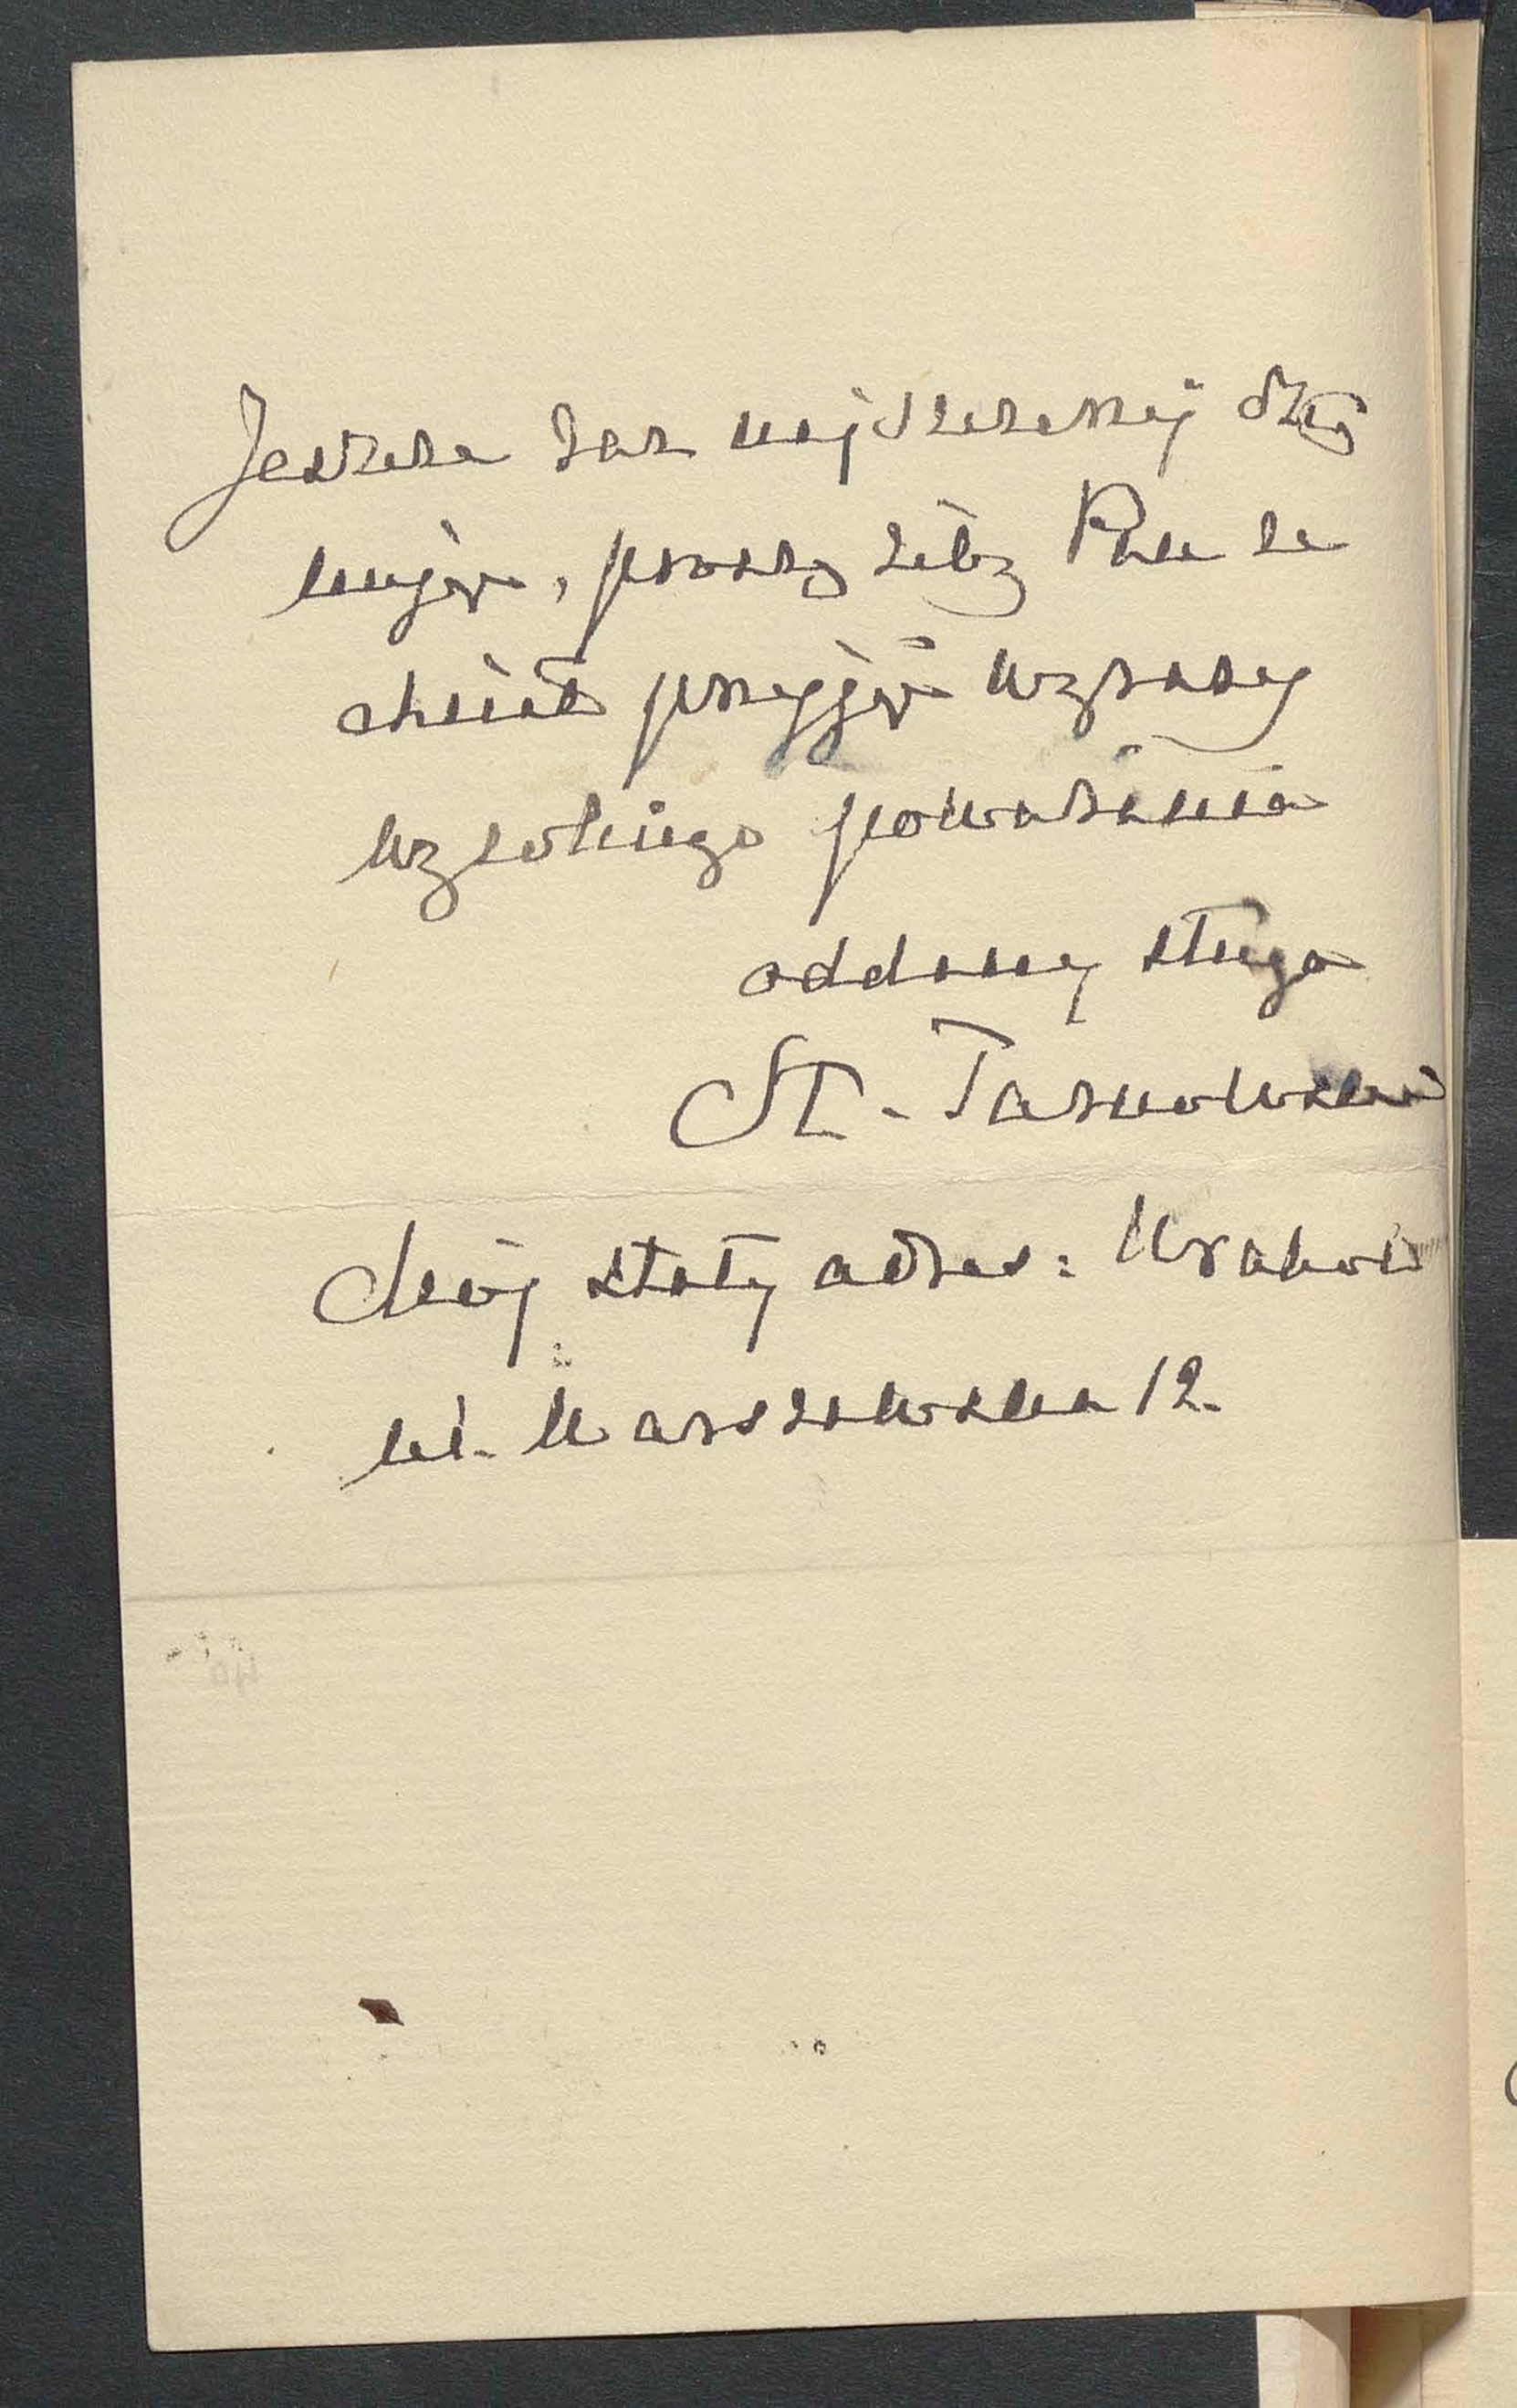 Jeszcze raz najszczerzej dzię
kując, proszę żeby Pan ze
chciał przyjąć wyrazy
wysokiego poważania
oddany sługa
St. Tarnowski
Mój stały adres: Kraków
ul. Warszawska 12.